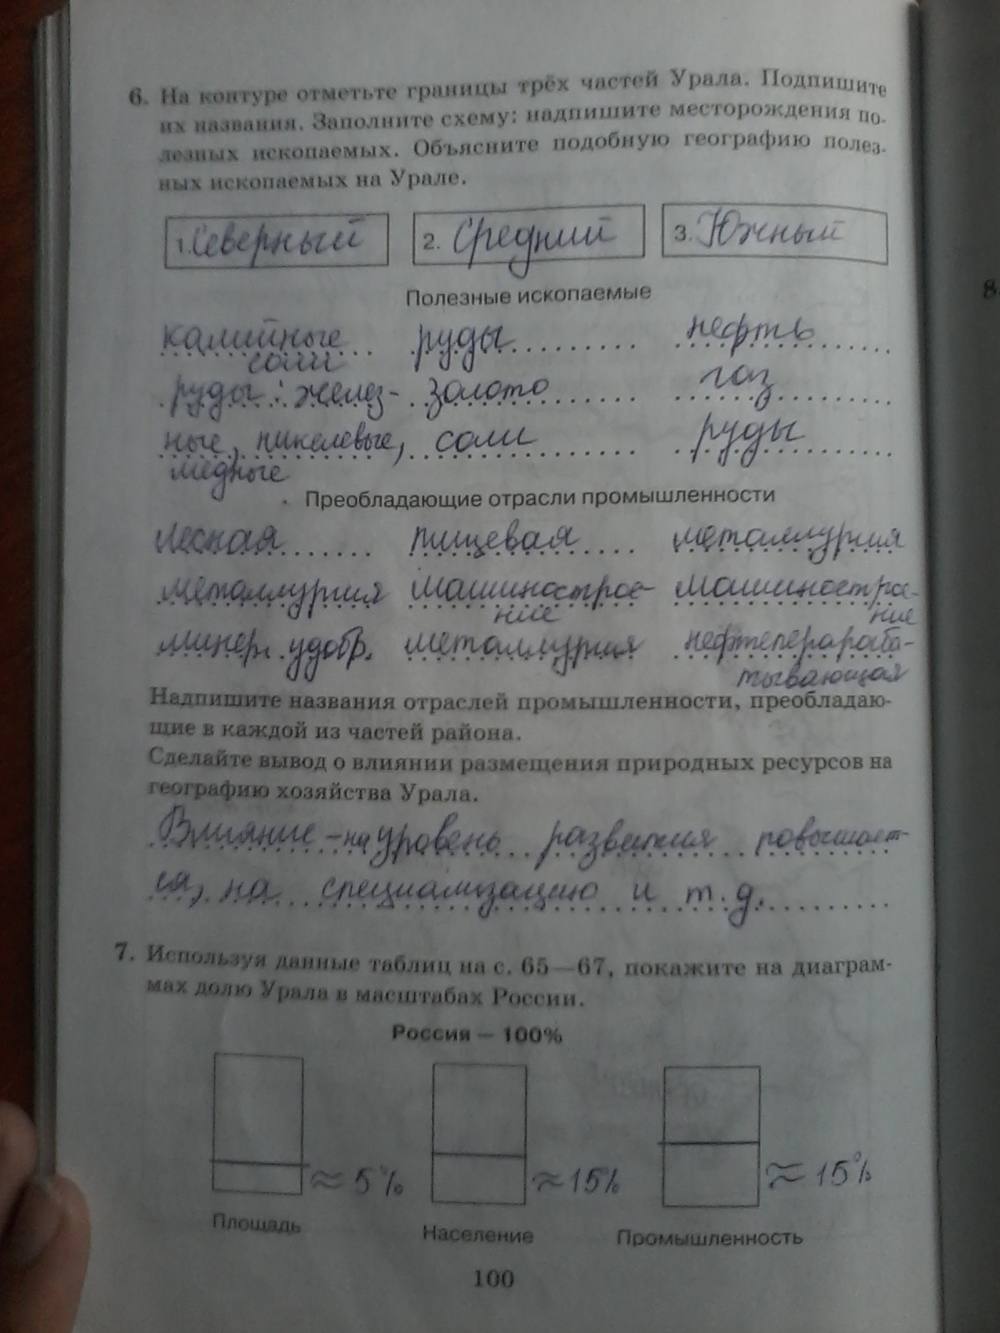 6. На контуре отметьте границы трёх частей Урала. Подпишите
их названия. Заполните схему: надпишите месторождения по-
лезных ископаемых. Объясните подобную географию полез-
ных ископаемых на Урале.
1. Северный 2. Средний 3. Южный
Полезные ископаемые
калийные руды нефть
соли
руды: желез- золото газ
ные, никелевые, соли руды
медные
Преобладающие отрасли промышленности
лесная пищевая металлургия
металлургия машинострое- машинострое-
ние ние
минер. удобр. металлургия нефтеперараба-
тывающая
Надпишите названия отраслей промышленности, преобладаю-
щие в каждой из частей района.
Сделайте вывод о влиянии размещения природных ресурсов на
географию хозяйства Урала.
Влияние – на уровень развития повышает-
ся, на специализацию и т.д.
7. Используя данные таблиц на с. 65—67, покажите на диаграм-
мах долю Урала в масштабах России.
Россия — 100%
≈ 5% ≈ 15% ≈ 15%
Площадь Население Промышленность
100
8